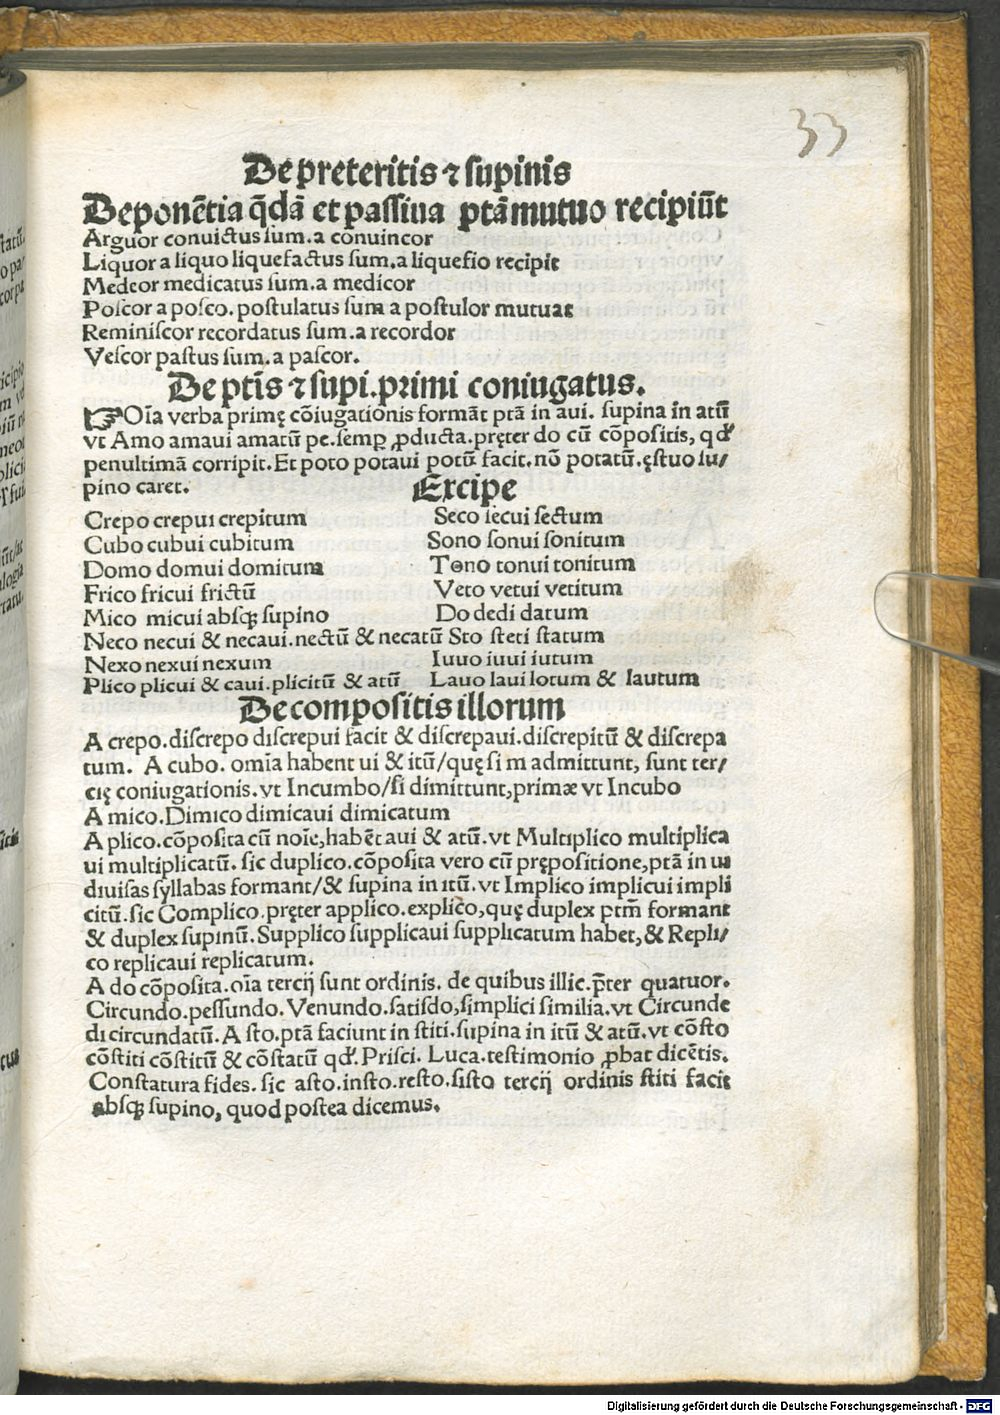 33
De preteritis ⁊ supinis
Deponētia q̄dā et passiua ptā mutuo recipiūt
Arguor conuictus sum. a conuincor
Liquor a liquo liquefactus sum. a liquefio recipit
Medeor medicatus sum. a medicor
Poscor a posco. postulatus sum a postulor mutuat
Reminiscor recordatus sum. a recordor
Vescor pastus sum. a pascor.
De ptīs ⁊ supi. primi coniugatus.
☞ Oīa verba primę cōiugationis formāt ptā in aui. supina in atū
vt Amo amaui amatū pe. semꝑ ꝓducta. pręter do cū cōpositis, qđ
penultimā corripit. Et poto potaui potū facit. nō potatū. ęstuo su/
pino caret.
Excipe
Crepo crepui crepitum
Seco secui sectum
Cubo cubui cubitum
Sono sonui sonitum
Domo domui domitum
Tono tonui tonitum
Frico fricui frictū
Veto vetui vetitum
Mico micui absqꝫ supino
Do dedi datum
Neco necui & necaui. nectū & necatū
Sto steti statum
Nexo nexui nexum
Iuuo iuui iutum
Plico plicui & caui. plicitū & atū
Lauo laui lotum & lautum
De compositis illorum
A crepo. discrepo discrepui facit & discrepaui. discrepitū & discrepa
tum. A cubo. omīa habent ui & itū/quę si m admittunt, sunt ter/
cię coniugationis. vt Incumbo/si dimittunt, primæ vt Incubo
A mico. Dimico dimicaui dimicatum
A plico. cōposita cū noīe, habēt aui & atū. vt Multiplico multiplica
ui multiplicatū. sic duplico. cōposita vero cū prępositione, ptā in ui
diuisas syllabas formant/& supina in itū. vt Implico implicui impli
citū. sic Complico. pręter applico. explico, quę duplex ptm̄ formant
& duplex supinū. Supplico supplicaui supplicatum habet, & Repli/
co replicaui replicatum.
A do cōposita. oīa tercij sunt ordinis. de quibus illic. p̄ter quatuor.
Circundo. pessundo. Venundo. satisdo, simplici similia. vt Circunde
di circundatū. A sto. ptā faciunt in stiti. supina in itū & atū. vt cōsto
cōstiti cōstitū & cōstatū qđ. Prisci. Luca. testimonio ꝓbat dicētis.
Constatura fides. sic asto. insto. resto. sisto tercij ordinis stiti facit
absqꝫ supino, quod postea dicemus.
Digitalisierung gefördert durch die Deutsche Forschungsgemeinschaft - DFG